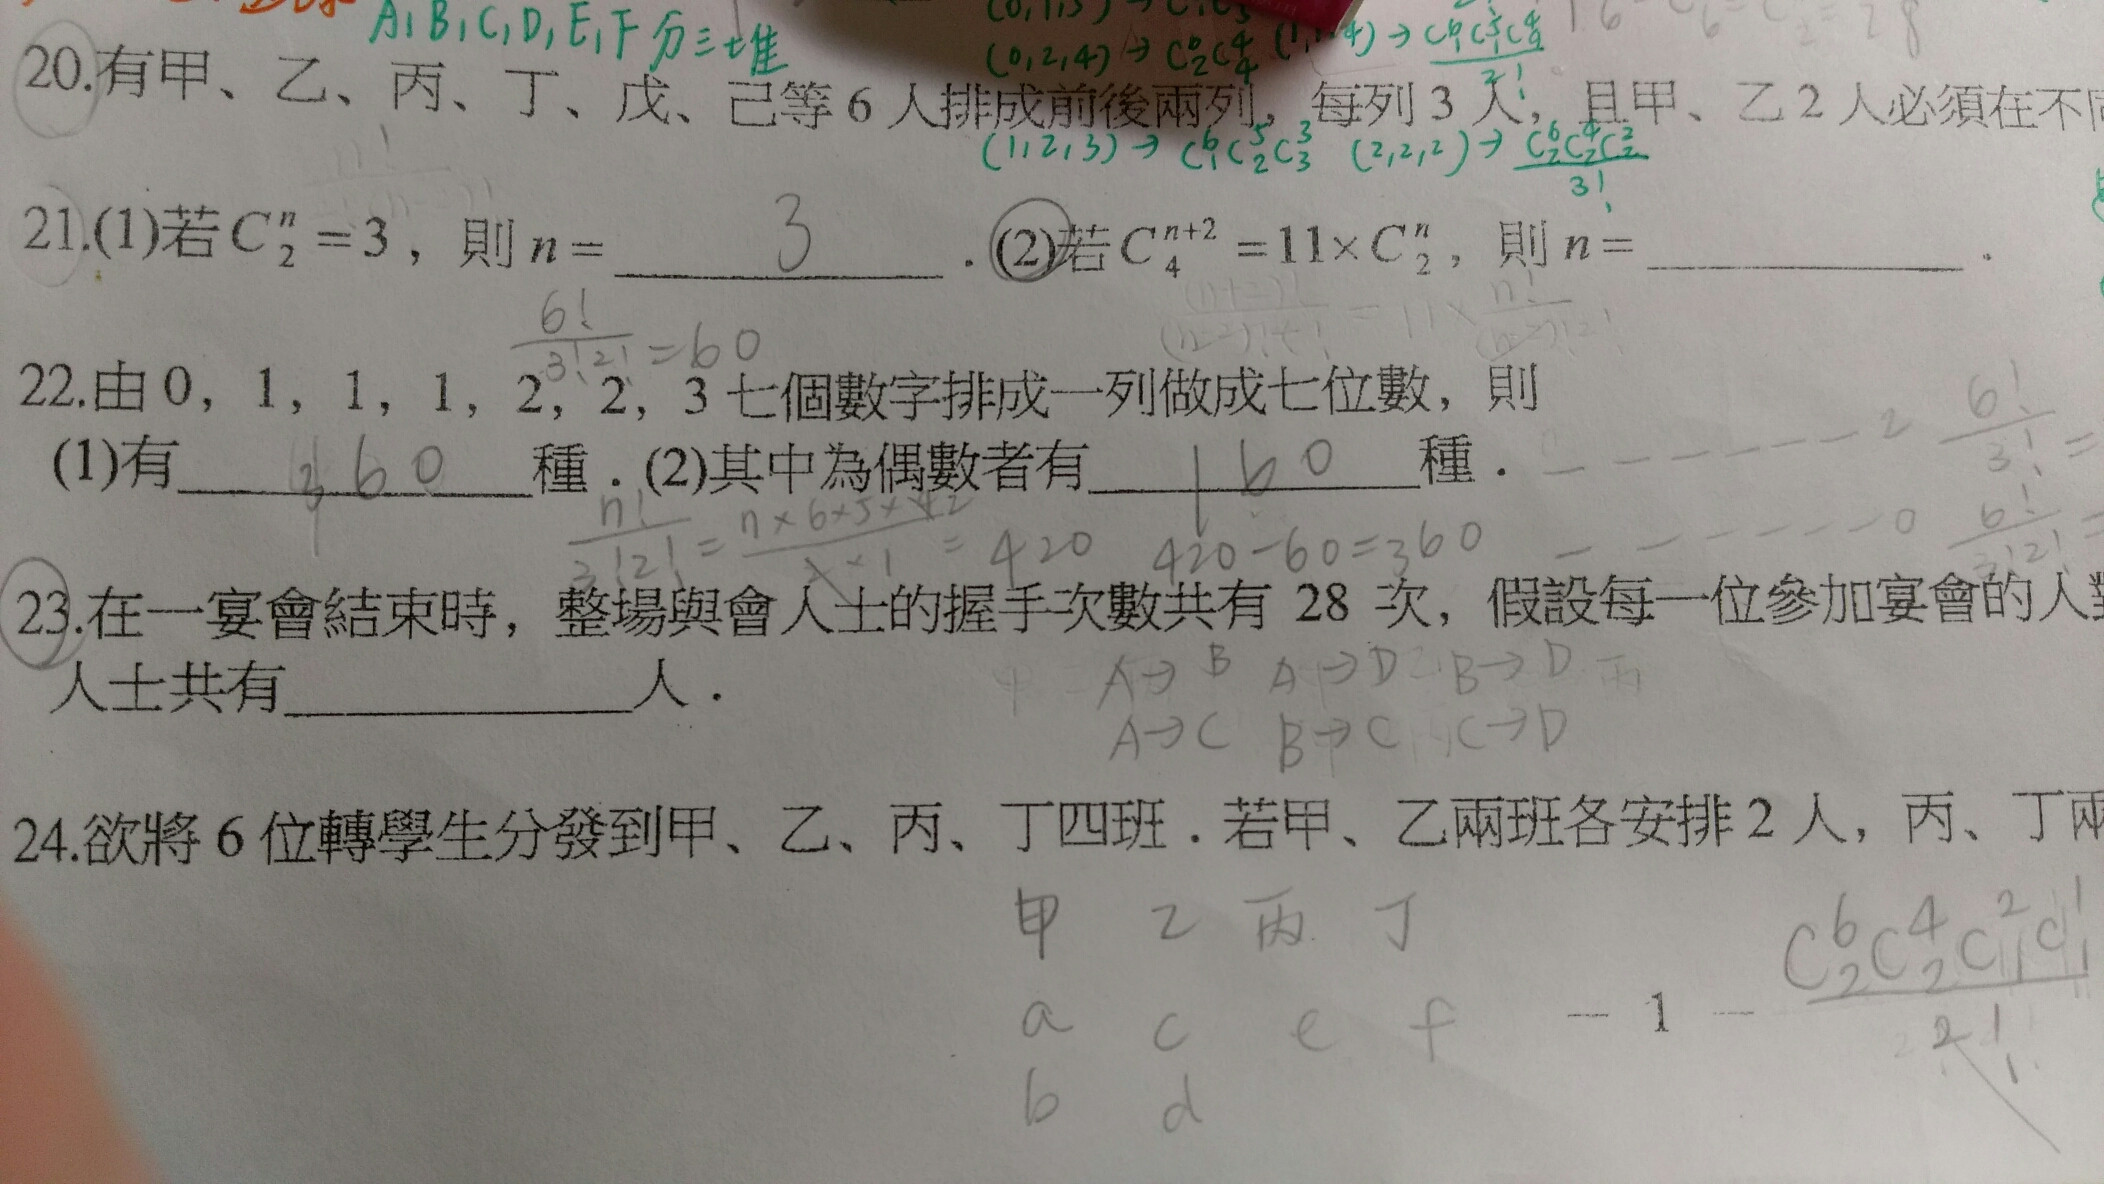 A,B,C,D,E,F 分三堆
(0,2,4) → C⁶₂C⁴₄
20.有甲、乙、丙、丁、戊、己等 6 人排成前後兩列，每列 3 人，且甲、乙 2 人必須在不
(1,2,3) → C⁶₁C⁵₂C³₃ (2,2,2) → C⁶₂C⁴₂C²₂/3!
21.(1)若 Cⁿ₂ = 3，則 n = 3 ．(2)若 Cⁿ⁺²₄ = 11× Cⁿ₂，則 n = ．
6!/3!2! = 60
(n+2)!/(n-2)!4! = 11 × n!/(n-2)!2!
22.由 0，1，1，1，2，2，3 七個數字排成一列做成七位數，則
(1)有 360 種．(2)其中為偶數者有 160 種．
2 6!/3! =
420 420-60=360
0 6!/3!2! =
23.在一宴會結束時，整場與會人士的握手次數共有 28 次，假設每一位參加宴會的人
人士共有 人．
A→B A→D B→D
A→C B→C C→D
24.欲將 6 位轉學生分發到甲、乙、丙、丁四班．若甲、乙兩班各安排 2 人，丙、丁兩
甲 乙 丙 丁
C⁶₂C⁴₂C²₁C¹₁/2!
a c e f
- 1 -
b d